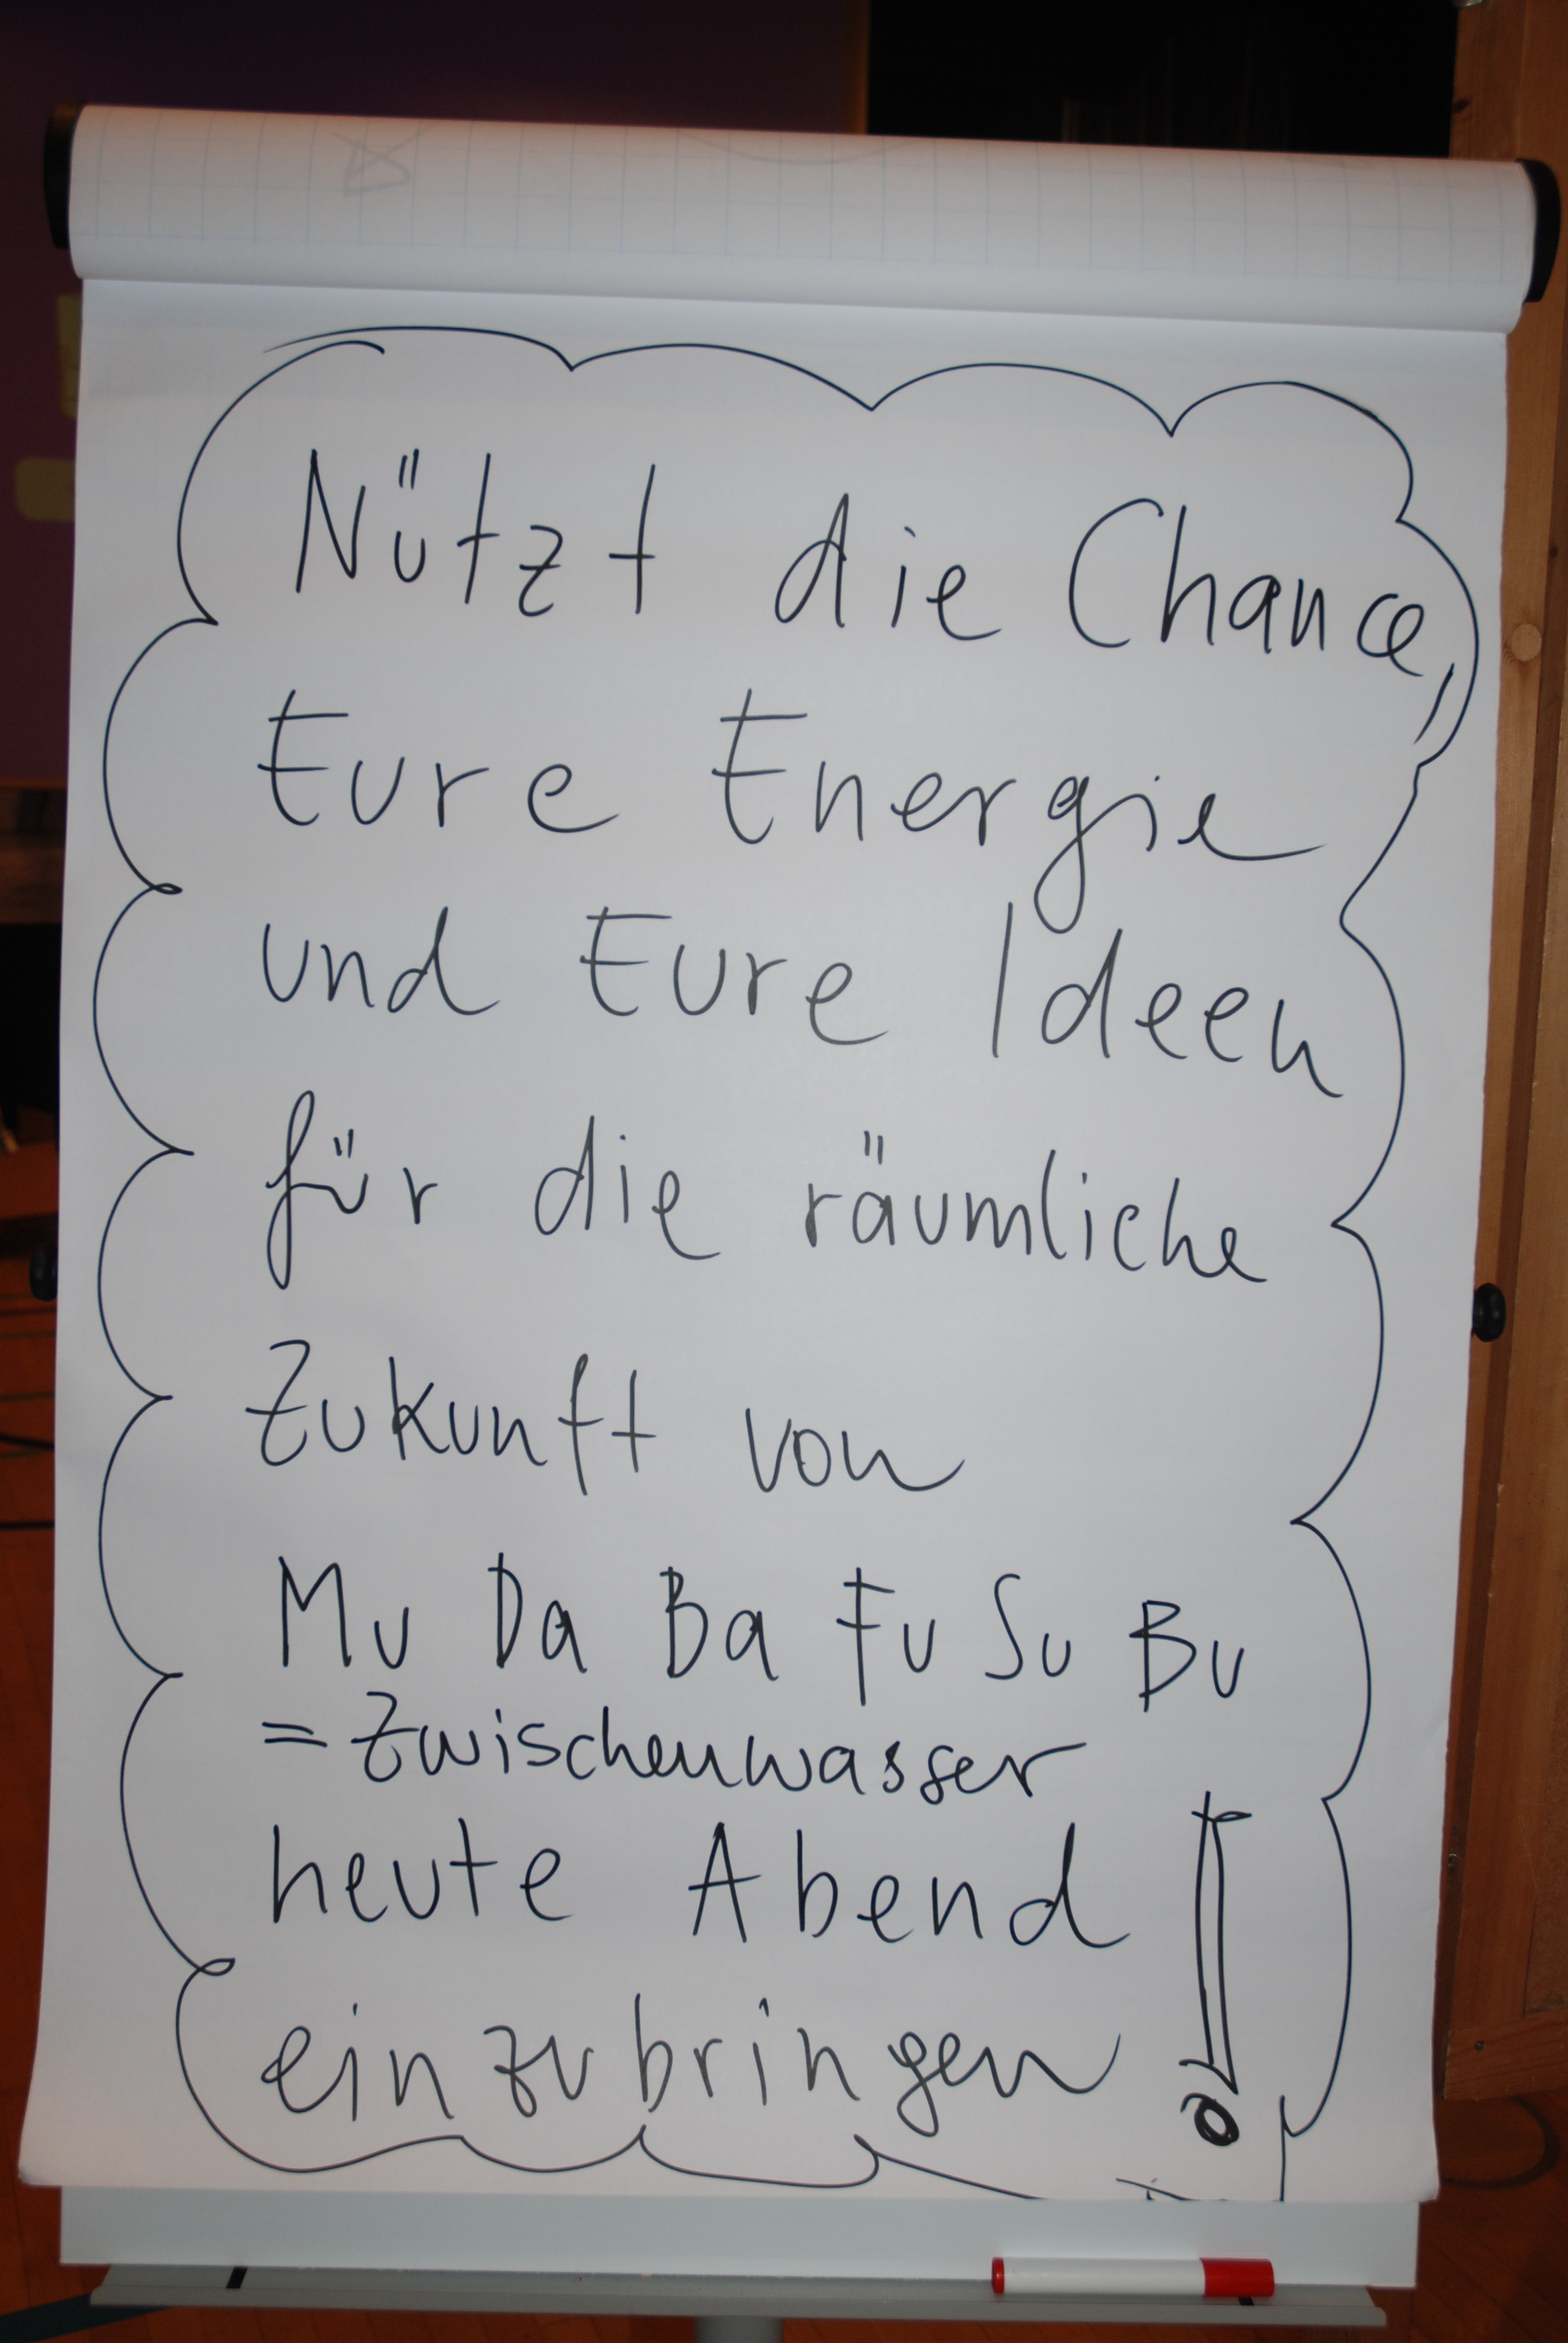 Nützt die Chance,
Eure Energie
und Eure Ideen
für die räumliche
Zukunft von
Mu Da Ba Fu Su Bu
= Zwischenwasser
heute Abend
einzubringen !